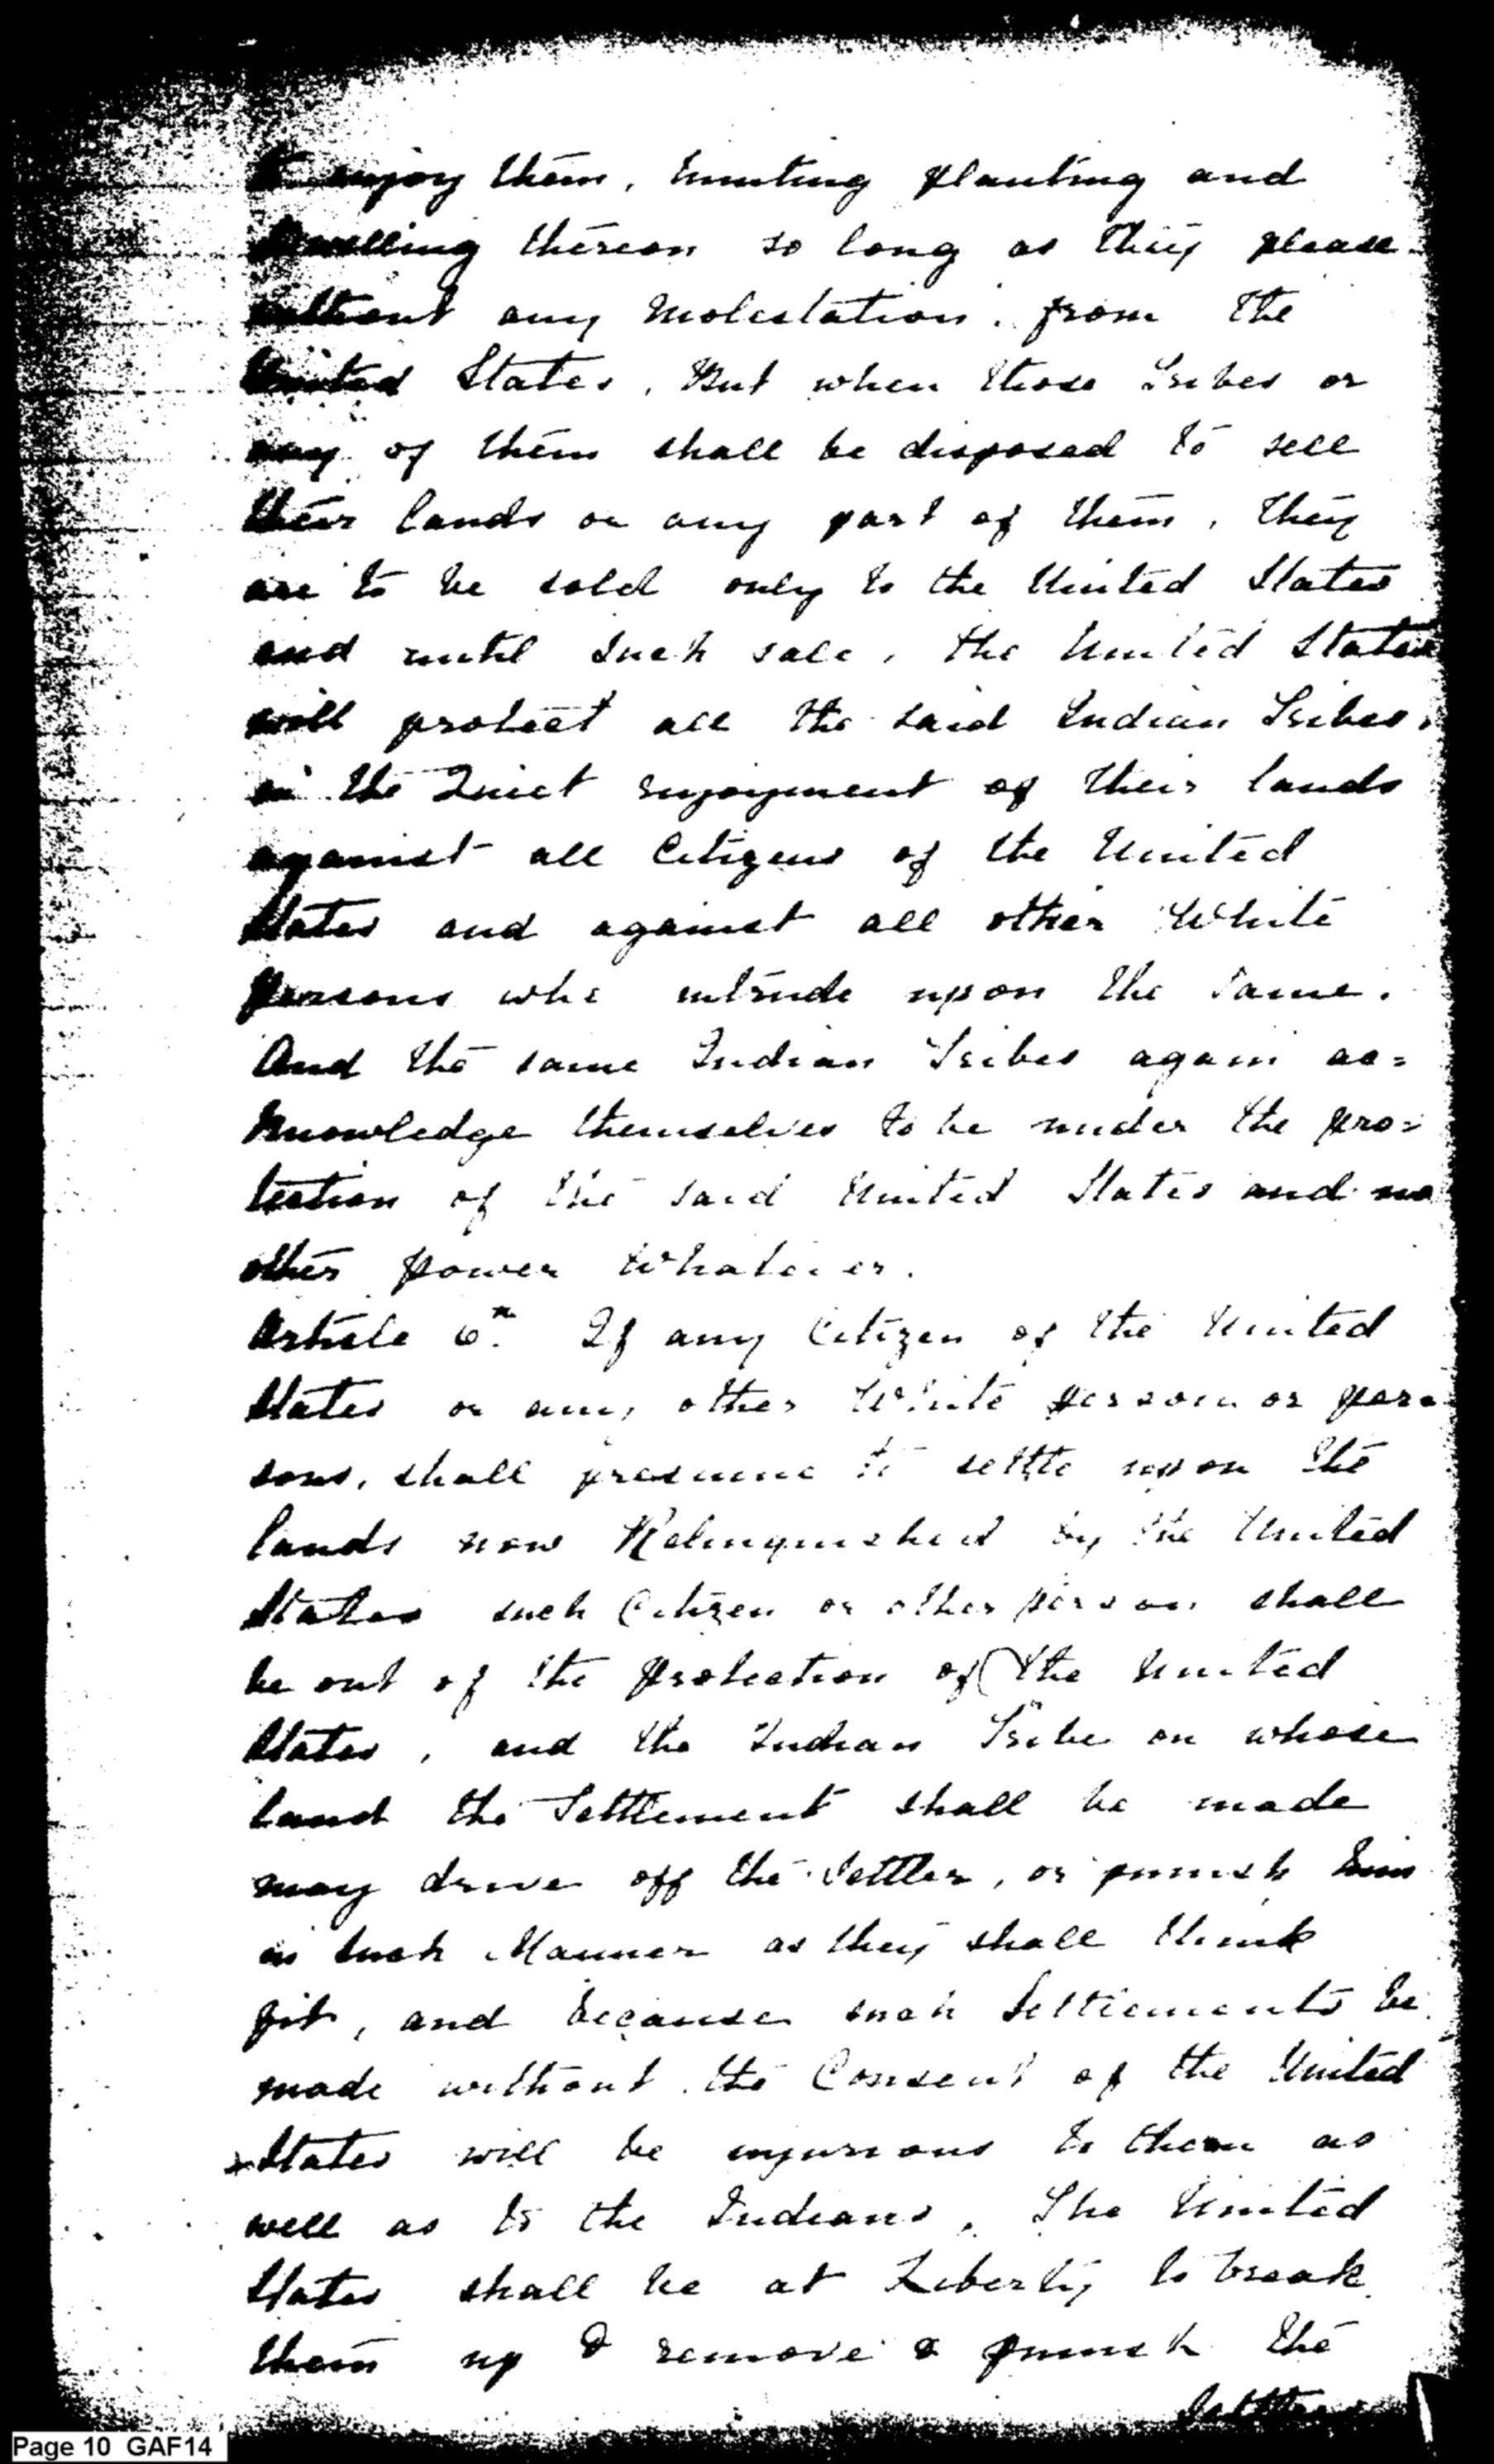 to enjoy them, hunting planting and
dwelling thereon so long as they please
without any molestation from the
United States, But when those Tribes or
any of them shall be disposed to sell
their lands or any part of them, they
are to be sold only to the United States
and until such sale, the United States
will protect all the said Indian Tribes,
in the Quiet enjoyment of their lands
against all Citizens of the United
States and against all other White
persons who intrude upon the same.
And the same Indian Tribes again ac=
knowledge themselves to be under the pro=
tection of the said United States and no
other power Whatever.
Article 6th. If any Citizen of the United
States or any other White person or per=
sons, shall presume to settle upon the
lands now Relinquished by the United
States such Citizen or other person shall
be out of the protection of the United
States, and the Indian Tribe on whose
land the Settlement shall be made
may drive off the Settler, or punish him
in such Manner as they shall think
fit, and because such Settlements be
made without the Consent of the United
States will be injurious to them as
well as to the Indians, The United
States shall be at Liberty to break
them up & remove & punish the
Settlers
Page 10 GAF14